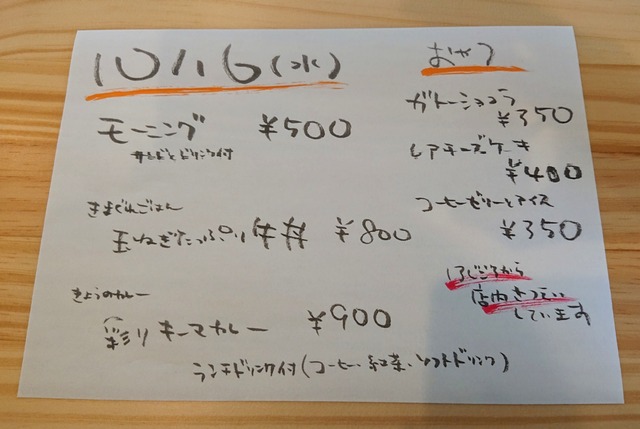 10/16(水)
モーニング ¥500
サラダとドリンク付
きまぐれごはん
玉ねぎたっぷり牛丼 ¥800
きょうのカレー
彩りキーマカレー ¥900
ランチドリンク付(コーヒー・紅茶・ソフトドリンク)
おやつ
ガトーショコラ
¥350
レアチーズケーキ
¥400
コーヒーゼリーとアイス
¥350
13じごろから
店内さつえい
しています